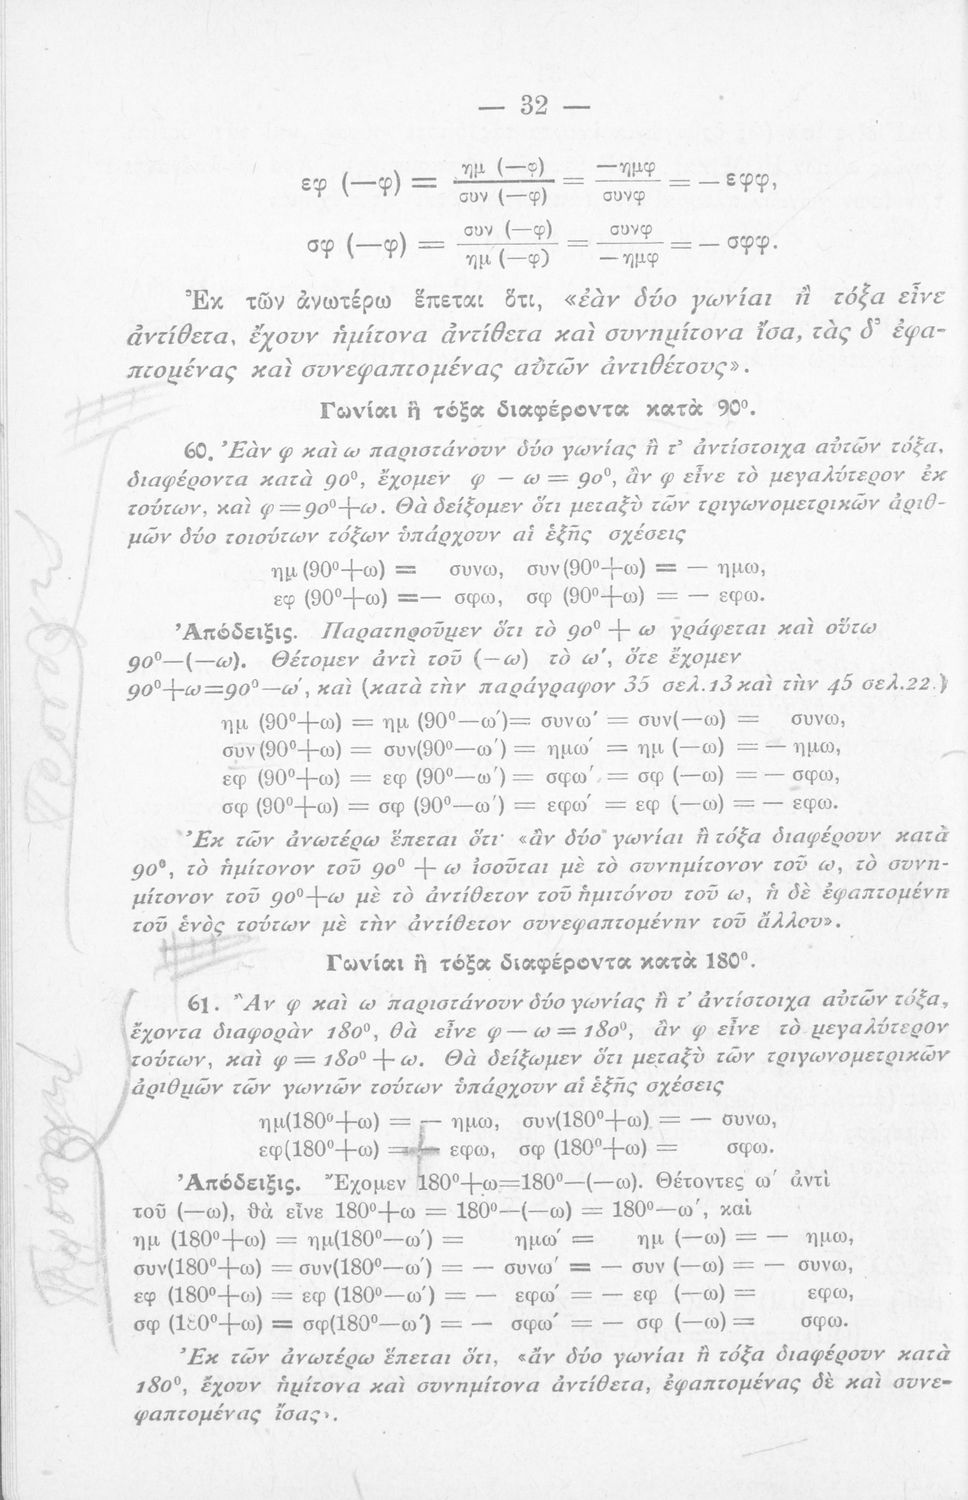 — 32 —
εφ (—φ) = ημ (—φ) / συν (—φ) = —ημφ / συνφ = — εφφ,
σφ (—φ) = συν (—φ) / ημ (—φ) = συνφ / — ημφ = — σφφ.
Ἐκ τῶν ἀνωτέρω ἕπεται ὅτι, «ἐὰν δύο γωνίαι ἢ τόξα εἶνε
ἀντίθετα, ἔχουν ἡμίτονα ἀντίθετα καὶ συνημίτονα ἴσα, τὰς δ' ἐφα-
πτομένας καὶ συνεφαπτομένας αὐτῶν ἀντιθέτους».
Γωνίαι ἢ τόξα διαφέροντα κατὰ 90⁰.
60. Ἐὰν φ καὶ ω παριστάνουν δύο γωνίας ἢ τ' ἀντίστοιχα αὐτῶν τόξα,
διαφέροντα κατὰ 90⁰, ἔχομεν φ — ω = 90⁰, ἂν φ εἶνε τὸ μεγαλύτερον ἐκ
τούτων, καὶ φ=90⁰+ω. Θὰ δείξομεν ὅτι μεταξὺ τῶν τριγωνομετρικῶν ἀριθ-
μῶν δύο τοιούτων τόξων ὑπάρχουν αἱ ἑξῆς σχέσεις
ημ (90⁰+ω) = συνω, συν (90⁰+ω) = — ημω,
εφ (90⁰+ω) =— σφω, σφ (90⁰+ω) = — εφω.
Ἀπόδειξις. Παρατηροῦμεν ὅτι τὸ 90⁰ + ω γράφεται καὶ οὕτω
90⁰—(—ω). Θέτομεν ἀντὶ τοῦ (—ω) τὸ ω', ὅτε ἔχομεν
90⁰+ω=90⁰—ω', καὶ (κατὰ τὴν παράγραφον 35 σελ.13 καὶ τὴν 45 σελ.22.)
ημ (90⁰+ω) = ημ (90⁰—ω')= συνω' = συν(—ω) = συνω,
συν (90⁰+ω) = συν(90⁰—ω') = ημω' = ημ (—ω) = — ημω,
εφ (90⁰+ω) = εφ (90⁰—ω') = σφω' = σφ (—ω) = — σφω,
σφ (90⁰+ω) = σφ (90⁰—ω') = εφω' = εφ (—ω) = — εφω.
Ἐκ τῶν ἀνωτέρω ἕπεται ὅτι· «ἂν δύο γωνίαι ἢ τόξα διαφέρουν κατὰ
90⁰, τὸ ἡμίτονον τοῦ 90⁰ + ω ἰσοῦται μὲ τὸ συνημίτονον τοῦ ω, τὸ συνη-
μίτονον τοῦ 90⁰+ω μὲ τὸ ἀντίθετον τοῦ ἡμιτόνου τοῦ ω, ἡ δὲ ἐφαπτομένη
τοῦ ἑνὸς τούτων μὲ τὴν ἀντίθετον συνεφαπτομένην τοῦ ἄλλου».
Γωνίαι ἢ τόξα διαφέροντα κατὰ 180⁰.
61. Ἂν φ καὶ ω παριστάνουν δύο γωνίας ἢ τ' ἀντίστοιχα αὐτῶν τόξα,
ἔχοντα διαφορὰν 180⁰, θὰ εἶνε φ — ω = 180⁰, ἂν φ εἶνε τὸ μεγαλύτερον
τούτων, καὶ φ = 180⁰ + ω. Θὰ δείξωμεν ὅτι μεταξὺ τῶν τριγωνομετρικῶν
ἀριθμῶν τῶν γωνιῶν τούτων ὑπάρχουν αἱ ἑξῆς σχέσεις
ημ(180⁰+ω) = — ημω, συν(180⁰+ω) = — συνω,
εφ(180⁰+ω) = εφω, σφ (180⁰+ω) = σφω.
Ἀπόδειξις. Ἔχομεν 180⁰+ω=180⁰—(—ω). Θέτοντες ω' ἀντὶ
τοῦ (—ω), θὰ εἶνε 180⁰+ω = 180⁰—(—ω) = 180⁰—ω', καὶ
ημ (180⁰+ω) = ημ(180⁰—ω') = ημω' = ημ (—ω) = — ημω,
συν(180⁰+ω) = συν(180⁰—ω') = — συνω' = — συν (—ω) = — συνω,
εφ (180⁰+ω) = εφ (180⁰—ω') = — εφω' = — εφ (—ω) = εφω,
σφ (180⁰+ω) = σφ(180⁰—ω') = — σφω' = — σφ (—ω) = σφω.
Ἐκ τῶν ἀνωτέρω ἕπεται ὅτι, «ἂν δύο γωνίαι ἢ τόξα διαφέρουν κατὰ
180⁰, ἔχουν ἡμίτονα καὶ συνημίτονα ἀντίθετα, ἐφαπτομένας δὲ καὶ συνε-
φαπτομένας ἴσας».